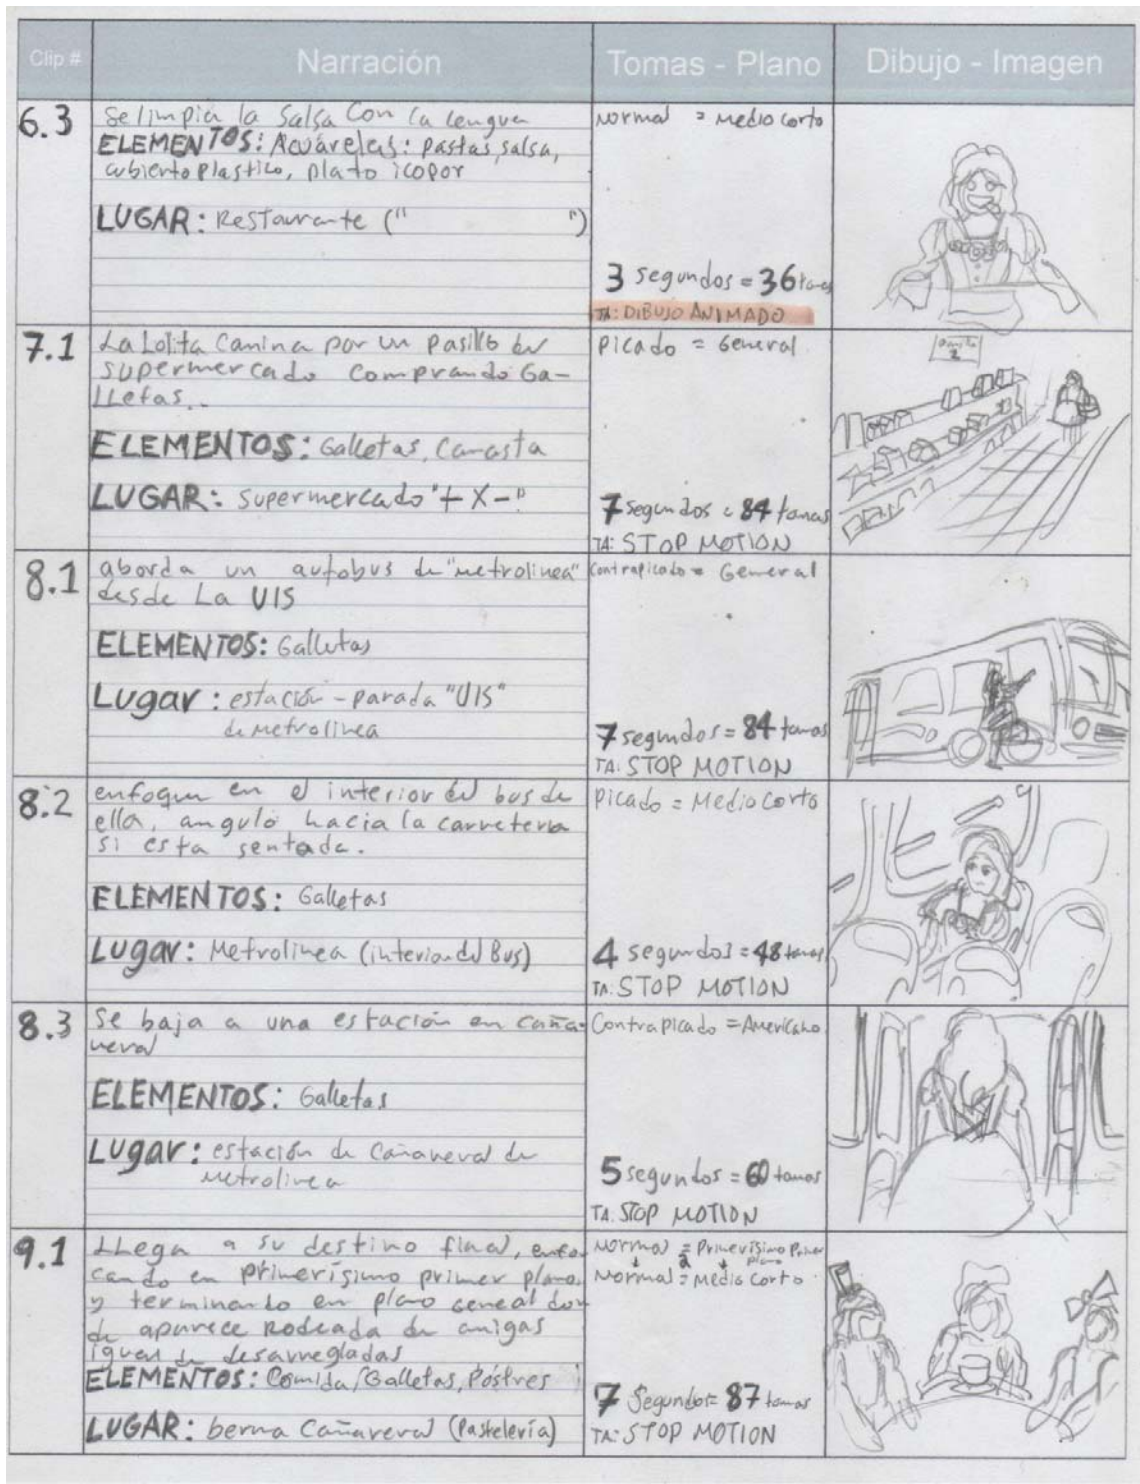 Clip #
Narración
Tomas - Plano
Dibujo - Imagen
6.3
Se limpia la Salsa con la lengua
ELEMENTOS: Acuarelas: pastas, salsa,
cubierto plastico, plato icopor
LUGAR: Restaurante (" ")
Normal = Medio corto
3 segundos = 36 tomas
TA: DIBUJO ANIMADO
7.1
La Lolita Camina por un pasillo de
supermercado comprando Ga-
LLetas..
ELEMENTOS: Galletas, Canasta
LUGAR: Supermercado "+ X -"
Picado = General
7 segundos = 84 tomas
TA: STOP MOTION
8.1
aborda un autobus de "metrolinea"
desde La UIS
ELEMENTOS: Galletas
Lugar: estación - parada "UIS"
de Metrolinea
Contrapicado = General
7 segundos = 84 tomas
TA: STOP MOTION
8.2
enfoque en el interior del bus de
ella, angulo hacia la carretera
si esta sentada.
ELEMENTOS: Galletas
Lugar: Metrolinea (interior del Bus)
Picado = Medio Corto
4 segundos = 48 tomas
TA: STOP MOTION
8.3
Se baja a una estación en caña-
veral
ELEMENTOS: Galletas
Lugar: estación de Cañaveral de
Metrolinea
Contrapicado = Americano
5 segundos = 60 tomas
TA. STOP MOTION
9.1
LLega a su destino final, enfo-
cando en primerísimo primer plano,
y terminando en plano general don
de aparece Rodeada de amigas
igual de desarregladas
ELEMENTOS: Comida/Galletas, Postres
LUGAR: berma Cañaveral (Pastelería)
Normal = Primerísimo Primer
plano
a
Normal = Medio corto
7 Segundos = 87 tomas
TA: STOP MOTION